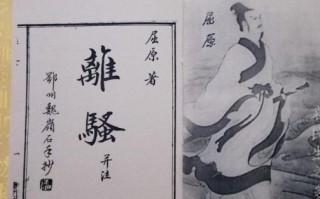 屈原 著
離騷 并注
鄂州魏嶺石手抄
屈原